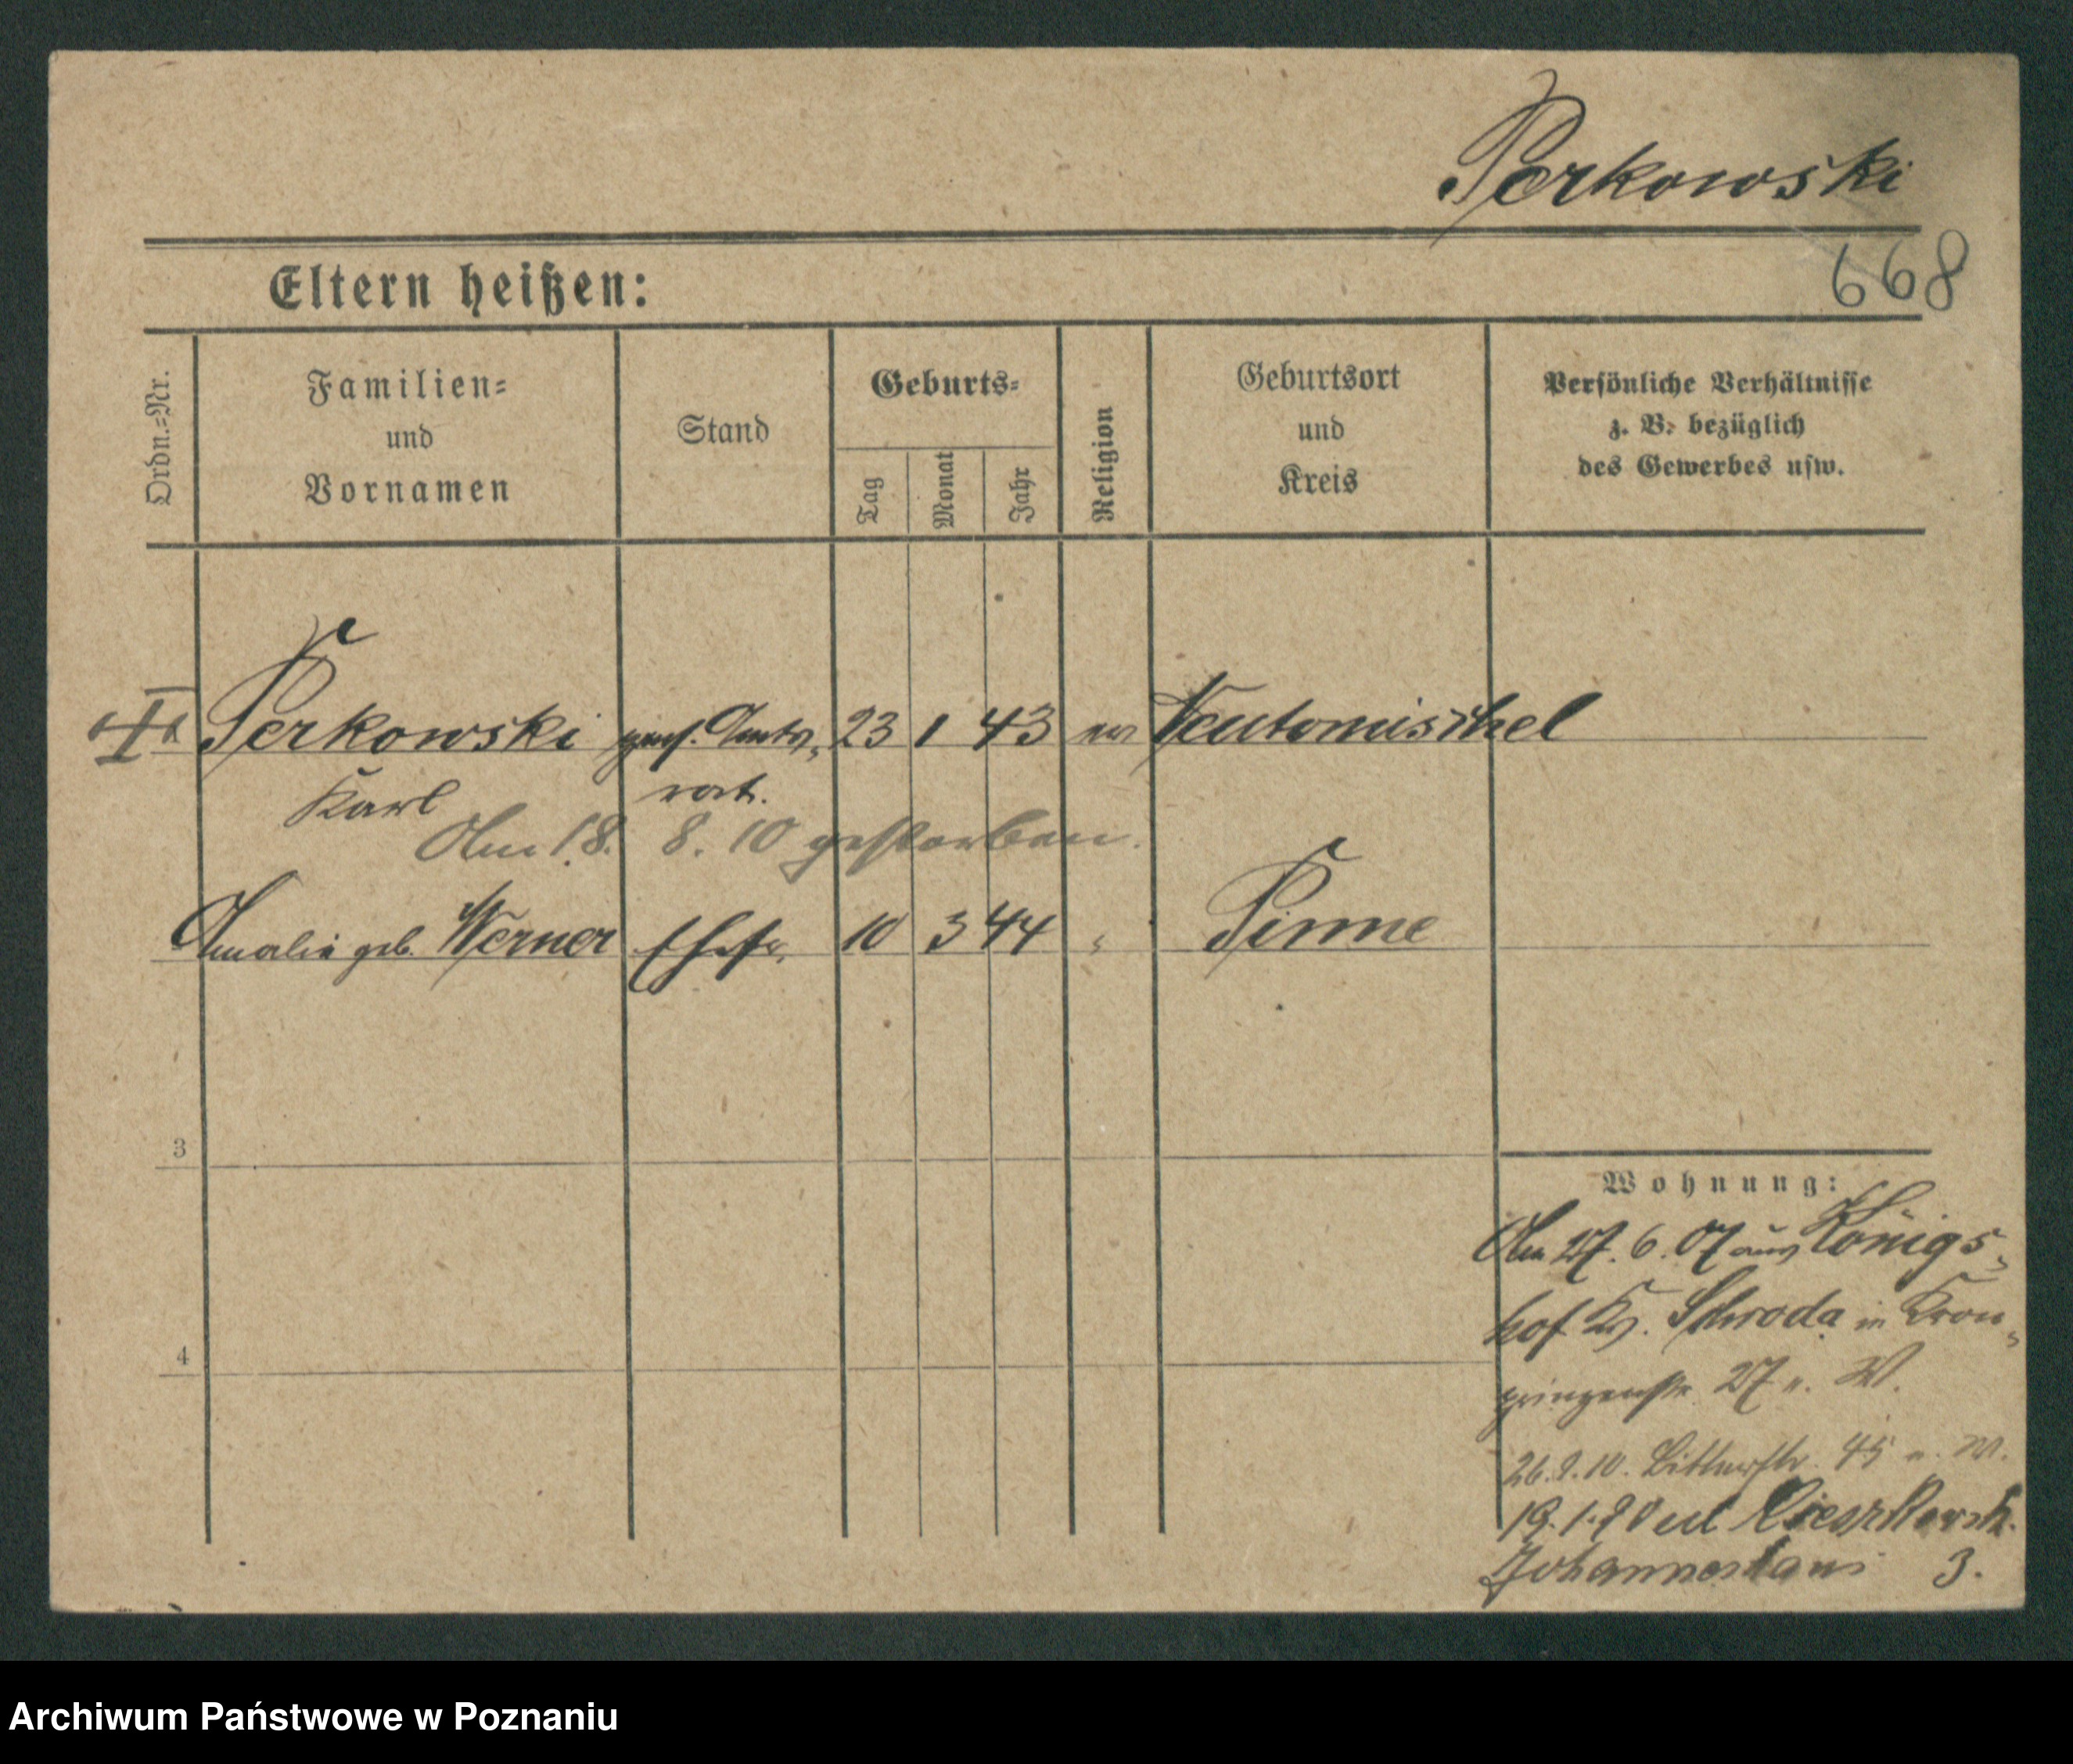 Perkowski
668
Eltern heißen:
Ordn.=Nr.
Familien=
und
Vornamen
Stand
Geburts=
Tag
Monat
Jahr
Religion
Geburtsort
und
Kreis
Persönliche Verhältnisse
z. B. bezüglich
des Gewerbes usw.
Perkowski 23 1 43 ev Neutomischel
Karl rat.
Am 18. 8. 10 gestorben.
Amalie geb. Werner Ehefr. 10 3 44 " Pinne
3
4
Wohnung:
Am 27. 6. 07 aus Königs-
hof Kr. Schroda in Kron-
prinzenstr. 27 u. W.
26. 9. 10. Bitterstr. 45 u. W.
19. 1. 20 ul
3.